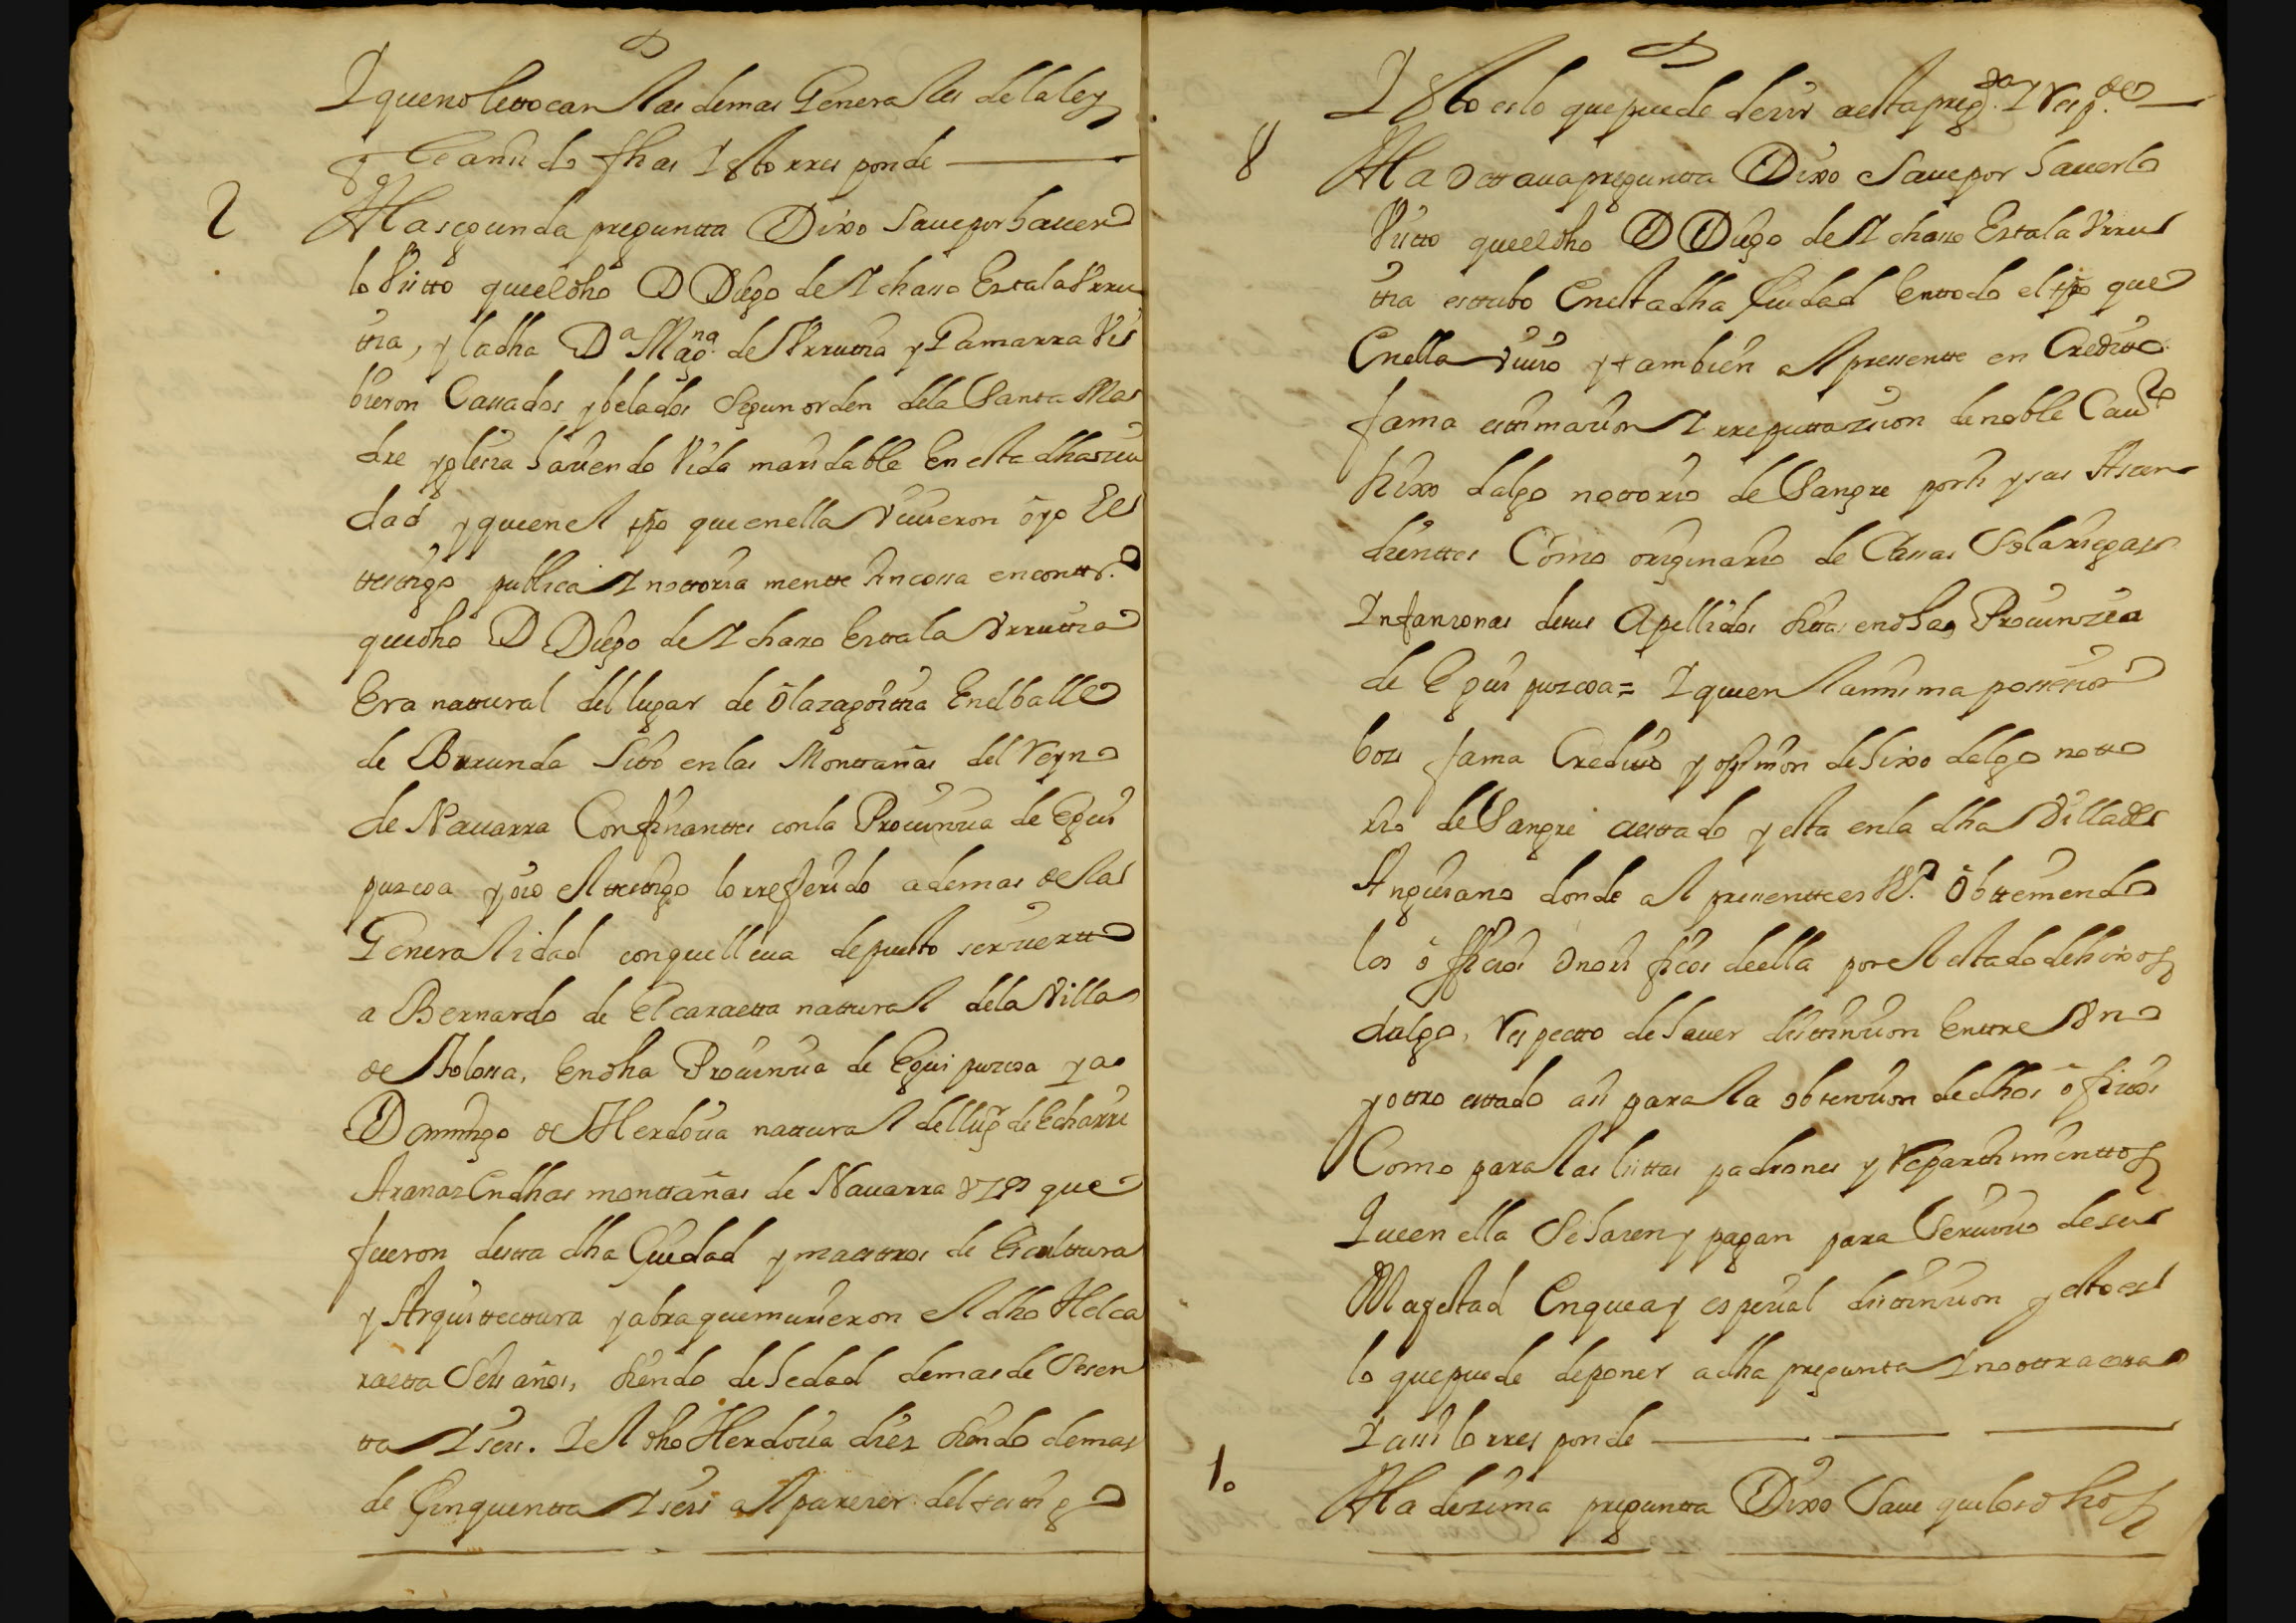 Y que no le ttocan las demas Generales de la ley
q le an sido fhas Y estto rresponde
2 A la segunda preguntta Dixo Save por haver
lo Vistto que el dho D Diego de Ychasso Extala Vrru
ttia, y la dha Da Magna de Vrruttia y Gamarra Vis
bieron Cassados y belados Segun orden de la Santa Ma
dre yglesia haciendo Vida maridable En estta dha ciu
dad y que en el tpo que en ella Viuieron oyo Es
ttesttigo publica Y nottoria mentte sin cossa en conttro
que dho D Diego de Ychasso Extala Vrruttia
Era nattural del lugar de Olazagoittia En el balle
de Burunda Sitto en las Monttañas del Reyno
de Nauarra Confinanttes con la Prouincia de Egui
puzcoa y oio el ttesttigo lo rreferido ademas de la
Generalidad con que lleua depuestto ser ciertto
a Bernardo de Elcaraetta nattural de la Villa
de Tolossa, En dha Prouincia de Eguipuzcoa y a
Domingo de Herdocia nattural del lugr de Echarri
Aranaz En dhas monttañas de Nauarra vzos que
fueron desta dha Ciudad y maesttros de Escultura
y Arquittecttura y abra que murieron el dho Helca
raetta Seis años, siendo de hedad de mas de Sesen
tta Y seis. Y el dho Herdocia diez siendo de mas
de Cinquentta Y seis al parezer del testtigo
Y Estto es lo que puede dezir a esta pregta Y Respde
8 A la Octtaua preguntta Dixo Saue por hauerlo
Vistto que el dho D Diego de Ychasso Extala Vrru
ttia esttubo En esta dha Ciudad En ttodo el tpo que
En ella viuio y tambien al pressentte en Creditto
fama esttimacion Y rreputtazion de noble Cauro
hixo dalgo nottorio de Sangre por si y sus Asen
dienttes Como originario de Cassas Solariegas
Infanzonas de sus Apellidos sittas en dha Prouinzia
de Eguipuzcoa = Y que en la missma possession
boz fama Creditto y opinion de hixo dalgo notto
rio de Sangre a esttado y esta en la dha Villa de
Anguiano donde al pressentte es Vo. Obtteniendo
los officios onorificos de ella por el estado de hixos
dalgo, Respectto de hauer disttincion Enttre Vno
y ottro esttado asi para la obtencion de dhos officios
Como para las listtas padrones y Repartimienttos
Que en ella Se hazen y pagan para Seruicio de su
Magestad En que ay espezial disttincion y esto es
lo que puede deponer a dha pregunta Y no ottra cossa
Y assi lo rresponde
10 A la dezima preguntta Dixo Saue que los dhos